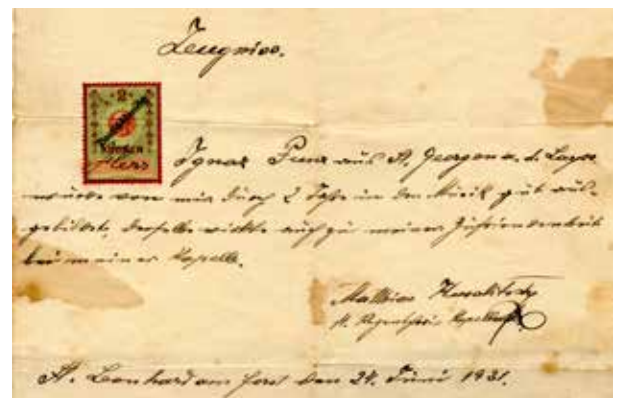 Zeugniss.
2
Ignaz Punz aus St. Georgen a. d. Leys
wurde von mir durch 2 Jahre in der Musik gut aus-
gebildet, derselbe wirkte auch zu meiner Zufriedenheit
bei meiner Kapelle.
Mathias
St. Leonhard am Forst den 24. Juni 1931.